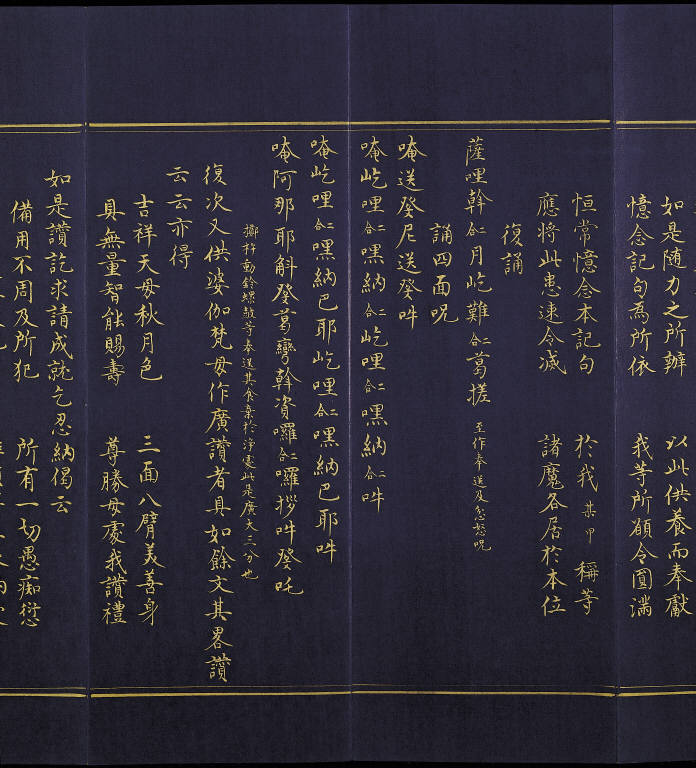 如是随力之所辦　以此供養而奉獻
憶念記句為所依　我等所願令圓滿
恒常憶念本記句　於我某甲稱等
應将此患速令滅　諸魔各居於本位
復誦
薩哩斡二合月屹難二合葛搓至作奉送及忿怒呪
誦四面呪
唵送癸尼送癸吽
唵屹哩二合嘿納二合屹哩二合嘿納二合吽
唵屹哩二合嘿納巴耶屹哩二合嘿納巴耶吽
唵阿那耶斛癸葛彎斡資囉二合囉拶吽癸吒
擲杵動鈴螺皷等奉送其食棄於浄處此是廣大三分也
復次又供婆伽梵母作廣讃者具如餘文其畧讃
云云亦得
吉祥天母秋月色　三面八臂美善身
具無量智能賜壽　尊勝母處我讃禮
如是讃訖求請成就乞忍納偈云
備用不周及所犯　所有一切愚痴愆